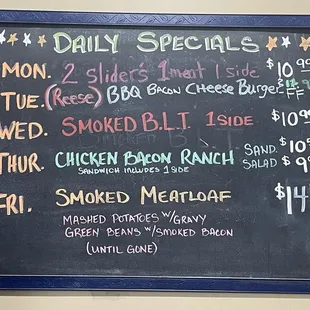 DAILY SPECIALS
MON. 2 slider's 1 meat 1 side $10.99
TUE. (Reese) BBQ BACON CHEESE BURGER
FF
WED. SMOKED B.L.T 1 SIDE $10.99
THUR. CHICKEN BACON RANCH SAND. $10
SANDWICH INCLUDES 1 SIDE SALAD $9
FRI. SMOKED MEATLOAF $14
MASHED POTATOES W/GRAVY
GREEN BEANS W/SMOKED BACON
(UNTIL GONE)